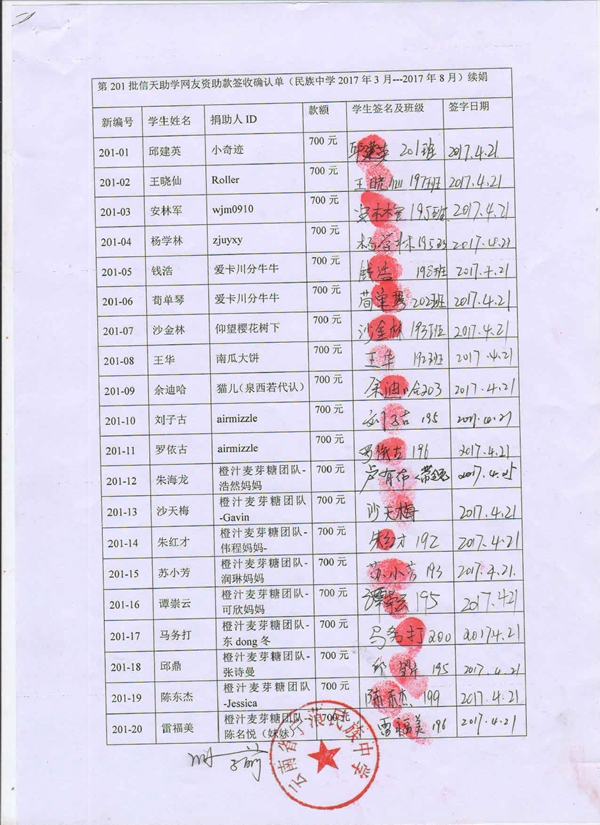 第 201 批信天助学网友资助款签收确认单（民族中学 2017 年 3 月---2017 年 8 月）续娟
新编号 学生姓名 捐助人 ID 款额 学生签名及班级 签字日期
201-01 邱建英 小奇迹 700 元 邱建英 201班 2017.4.21
201-02 王晓仙 Roller 700 元 王晓仙 197班 2017.4.21
201-03 安林军 wjm0910 700 元 安林军 195班 2017.4.21
201-04 杨学林 zjuyxy 700 元 杨学林 195班
201-05 钱浩 爱卡川分牛牛 700 元 钱浩 198班 2017.4.21
201-06 荀单琴 爱卡川分牛牛 700 元 荀单琴 202班 2017.4.21
201-07 沙金林 仰望樱花树下 700 元 沙金林 193班 2017.4.21
201-08 王华 南瓜大饼 700 元 王华 192班 2017.4.21
201-09 余迪哈 猫儿(泉西若代认) 700 元 余迪哈 203 2017.4.21
201-10 刘子古 airmizzle 700 元 刘子古 195
201-11 罗依古 airmizzle 700 元 罗依古 196 2017.4.21
201-12 朱海龙 橙汁麦芽糖团队-
浩然妈妈 700 元 卢有布
201-13 沙天梅 橙汁麦芽糖团队
-Gavin 700 元 沙天梅 2017.4.21
201-14 朱红才 橙汁麦芽糖团队-
伟程妈妈- 700 元 朱红才 192 2017.4.21
201-15 苏小芳 橙汁麦芽糖团队-
润琳妈妈 700 元 苏小芳 193 2017.4.21.
201-16 谭崇云 橙汁麦芽糖团队-
可欣妈妈 700 元 谭崇云 195 2017.421
201-17 马务打 橙汁麦芽糖团队-
东 dong 冬 700 元 马务打 200 20174.21
201-18 邱鼎 橙汁麦芽糖团队-
张诗曼 700 元 邱鼎 195 2017.4.21
201-19 陈东杰 橙汁麦芽糖团队
-Jessica 700 元 陈东杰 199 2017.4.21
201-20 雷福美 橙汁麦芽糖团队-
陈名悦（妹妹） 700 元 雷福美 196 2017.4.21
云南省宁蒗民族中学